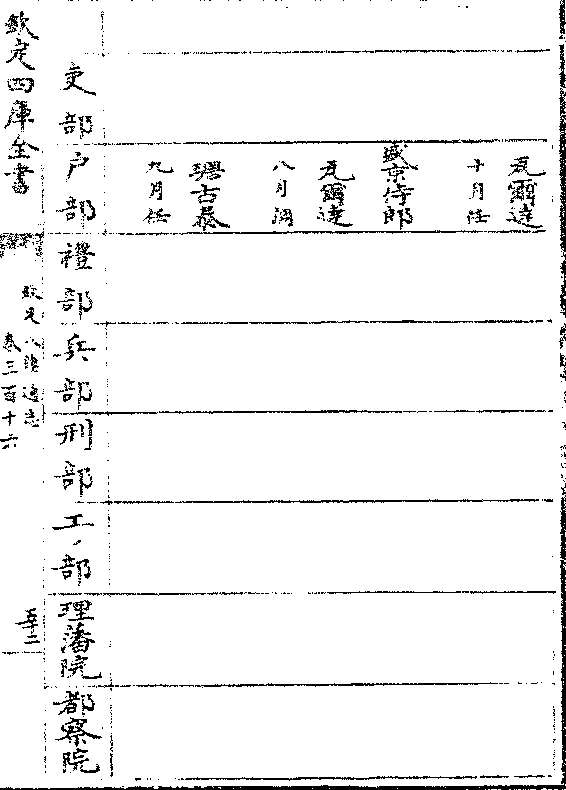 瓦爾達
十月任
盛京侍郎
瓦爾達
八月調
九月任
吏部
户部
禮部
兵部
刑部
工部
理藩院
都察院
欽定四庫全書
欽定八旗通志
卷三百十六
五十二